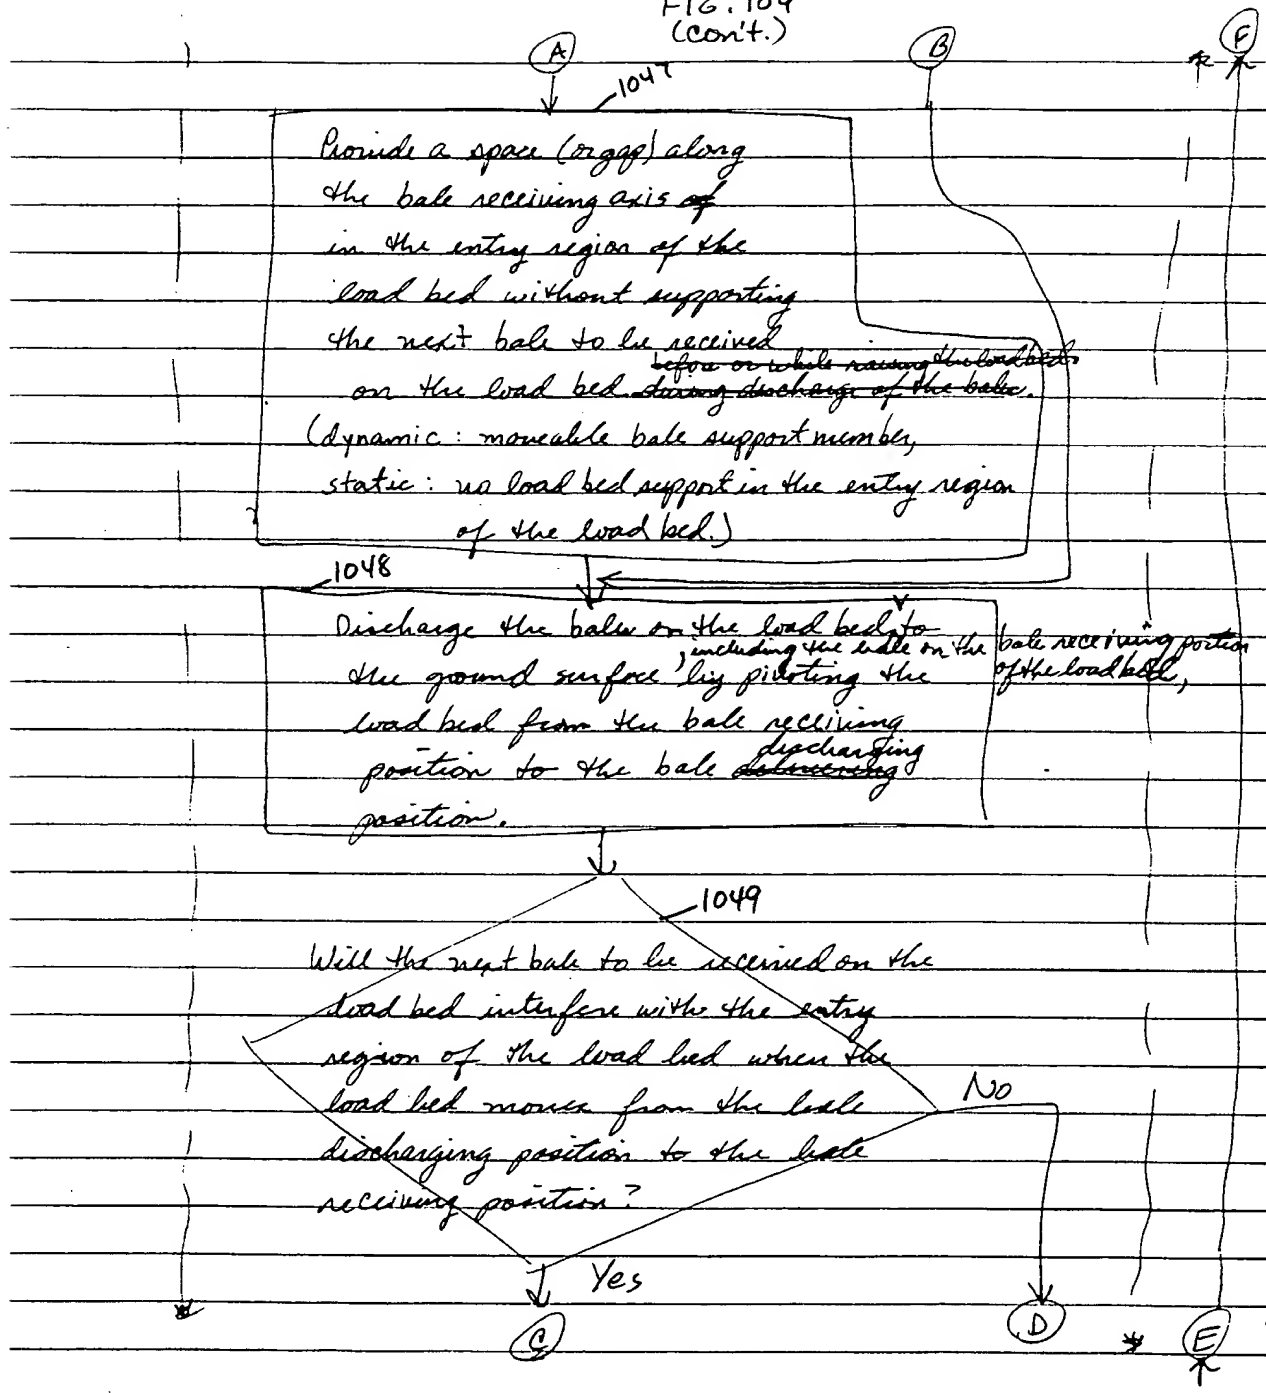 FIG. 104
(con't.)
A
B
F
1047
Provide a space (or gap) along
the bale receiving axis of
in the entry region of the
load bed without supporting
the next bale to be received
before or while raising the load bed
on the load bed during discharge of the bales.
(dynamic: moveable bale support member,
static: no load bed support in the entry region
of the load bed.)
1048
Discharge the bales on the load bed to
, including the bale on the bale receiving portion
of the load bed,
the ground surface by pivoting the
load bed from the bale receiving
discharging
position to the bale delivering
position.
1049
Will the next bale to be received on the
load bed interfere with the entry
region of the load bed when the
load bed moves from the bale
discharging position to the bale
receiving position?
No
Yes
C
D
E